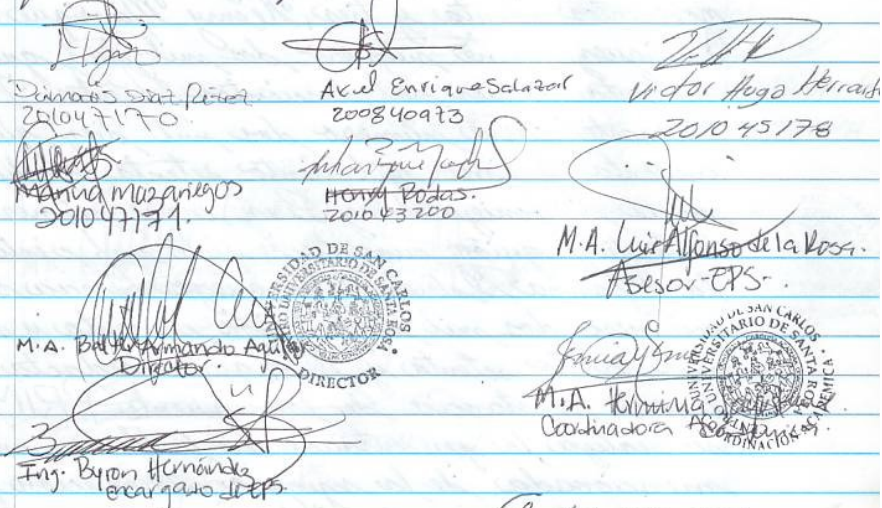 Díaz Pérez
201047170
Axel Enrique Salazar
200840973
Victor Hugo
201045178
Marina Mazariegos
201047171.
Henry Rodas.
201043200
M.A. Luis Alfonso de la Rosa.
Asesor-EPS-
M.A. Armando
Director.
UNIVERSIDAD DE SAN CARLOS
CENTRO UNIVERSITARIO DE SANTA ROSA
DIRECTOR
M.A.
Coordinadora
SAN CARLOS
UNIVERSITARIO DE SANTA ROSA
COORDINACIÓN ACADEMICA
Ing. Byron Hernández
encargado de EPS.